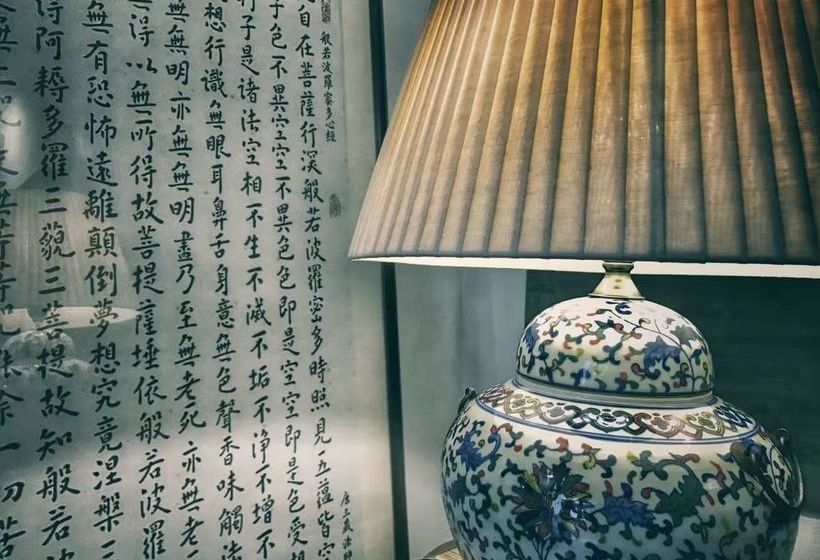 般若波羅蜜多心經
自在菩薩行深般若波羅蜜多時照見五蘊皆空
子色不異空空不異色色即是空空即是色受想
子是諸法空相不生不滅不垢不淨不增不
想行識無眼耳鼻舌身意無色聲香味觸法
無無明亦無無明盡乃至無老死亦無老
無得以無所得故菩提薩埵依般若波羅
無有恐怖遠離顛倒夢想究竟涅槃三
得阿耨多羅三藐三菩提故知般若波
無上咒是無等等咒能除一切苦
唐三藏法師